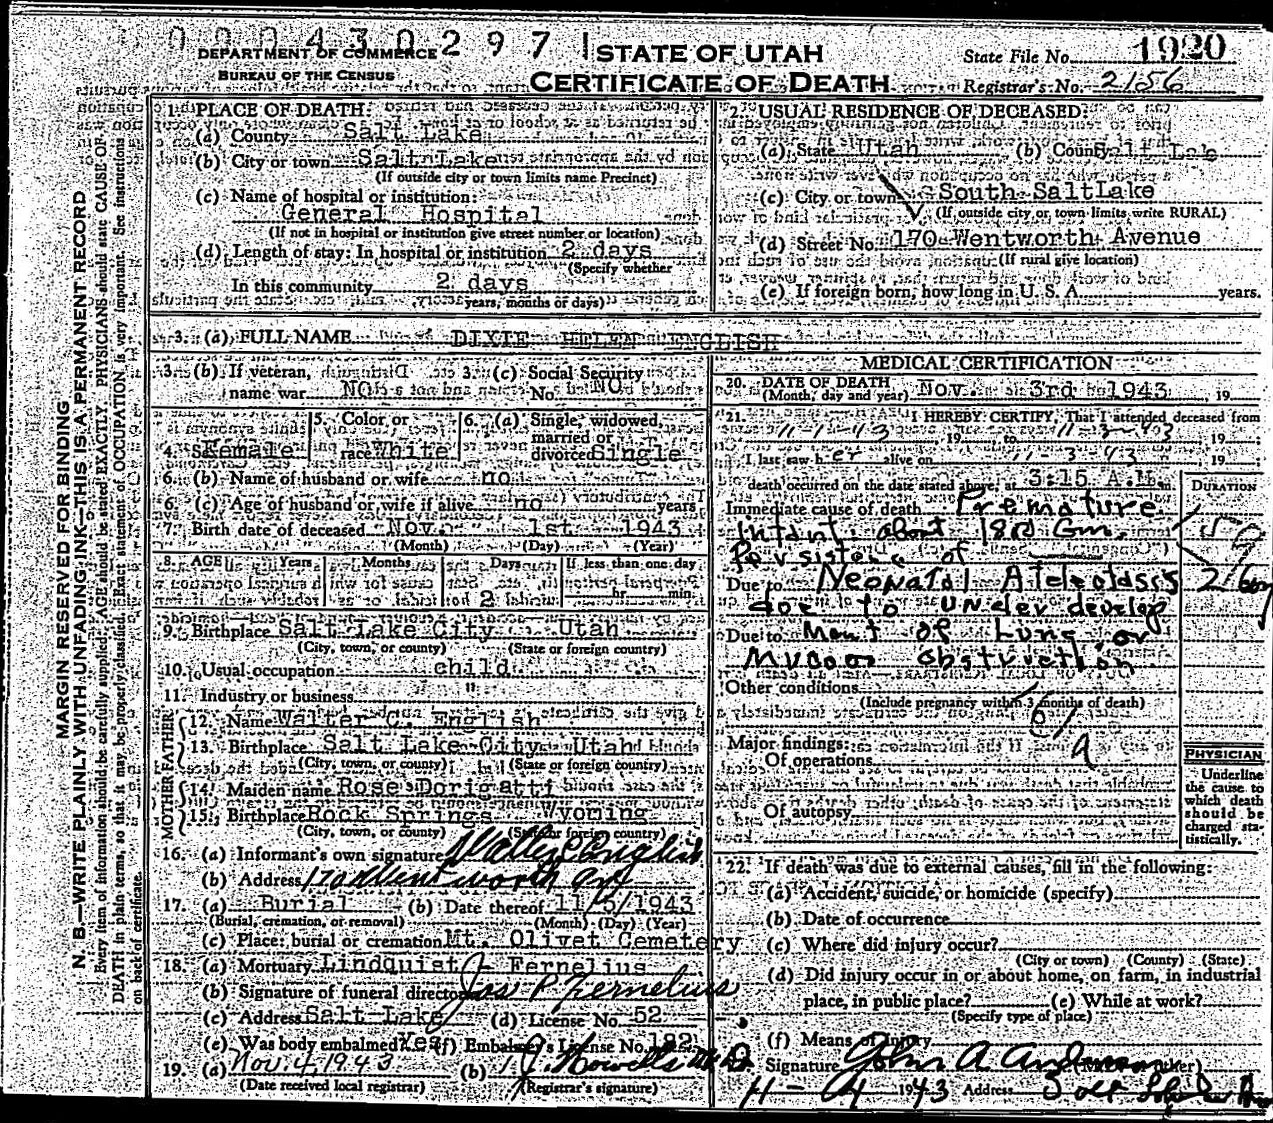 0 0 0 4 3 0 2 9 7
DEPARTMENT OF COMMERCE
BUREAU OF THE CENSUS
STATE OF UTAH
CERTIFICATE OF DEATH
State File No. 1920
Registrar's No. 2156
MARGIN RESERVED FOR BINDING
N. B.—WRITE PLAINLY WITH UNFADING INK—THIS IS A PERMANENT RECORD
Every item of information should be carefully supplied. AGE should be stated EXACTLY. PHYSICIANS should state CAUSE OF
DEATH in plain terms, so that it may be properly classified. Exact statement of OCCUPATION is very important. See instructions
on back of certificate.
1. PLACE OF DEATH:
(a) County Salt Lake
(b) City or town Salt Lake
(If outside city or town limits name Precinct)
(c) Name of hospital or institution:
General Hospital
(If not in hospital or institution give street number or location)
(d) Length of stay: In hospital or institution 2 days
(Specify whether
In this community 2 days
years, months or days)
2. USUAL RESIDENCE OF DECEASED:
(a) State Utah (b) County Salt Lake
(c) City or town South SaltLake
(If outside city or town limits write RURAL)
(d) Street No. 170 Wentworth Avenue
(If rural give location)
(e) If foreign born, how long in U. S. A. years.
3. (a) FULL NAME DIXIE HELEN ENGLISH
3. (b) If veteran, name war NO
3. (c) Social Security No. NO
4. Sex Female
5. Color or race White
6. (a) Single, widowed, married or divorced Single
6. (b) Name of husband or wife no
6. (c) Age of husband or wife if alive no years
7. Birth date of deceased Nov. 1st 1943
(Month) (Day) (Year)
8. AGE Years Months Days If less than one day
2 hr. min.
9. Birthplace Salt Lake City Utah
(City, town, or county) (State or foreign country)
10. Usual occupation child
11. Industry or business "
FATHER
12. Name Walter C. English
13. Birthplace Salt Lake City Utah
(City, town, or county) (State or foreign country)
MOTHER
14. Maiden name Rose Dorigatti
15. Birthplace Rock Springs Wyoming
(City, town, or county) (State or foreign country)
16. (a) Informant's own signature Walter C English
(b) Address 170 Wentworth Ave
17. (a) Burial (b) Date thereof 11/5/1943
(Burial, cremation, or removal) (Month) (Day) (Year)
(c) Place: burial or cremation Mt. Olivet Cemetery
18. (a) Mortuary Lindquist & Fernelius
(b) Signature of funeral director Jos P Fernelius
(c) Address Salt Lake (d) License No. 52
(e) Was body embalmed? Yes (f) Embalmer's License No. 192
19. (a) Nov. 4, 1943 (b)
(Date received local registrar) (Registrar's signature)
MEDICAL CERTIFICATION
20. DATE OF DEATH Nov. 3rd 1943, 19
(Month, day and year)
21. I HEREBY CERTIFY, That I attended deceased from
11-1-43, 19 to 11-3-43, 19
I last saw h er alive on 11-3-43, 19
death occurred on the date stated above, at 3:15 A.M. m.
DURATION
Immediate cause of death Premature
Infant about Gm.
Persistence of
Due to Neonatal Atelectasis
due to under develop
Due to ment of Lung or
Mucous obstruction
Other conditions
(Include pregnancy within 3 months of death)
Major findings:
Of operations
Of autopsy
PHYSICIAN
Underline
the cause to
which death
should be
charged sta-
tistically.
22. If death was due to external causes, fill in the following:
(a) Accident, suicide, or homicide (specify)
(b) Date of occurrence
(c) Where did injury occur?
(City or town) (County) (State)
(d) Did injury occur in or about home, on farm, in industrial
place, in public place? (e) While at work?
(Specify type of place)
(f) Means of injury
Signature John A Anderson
11-4 1943 Address